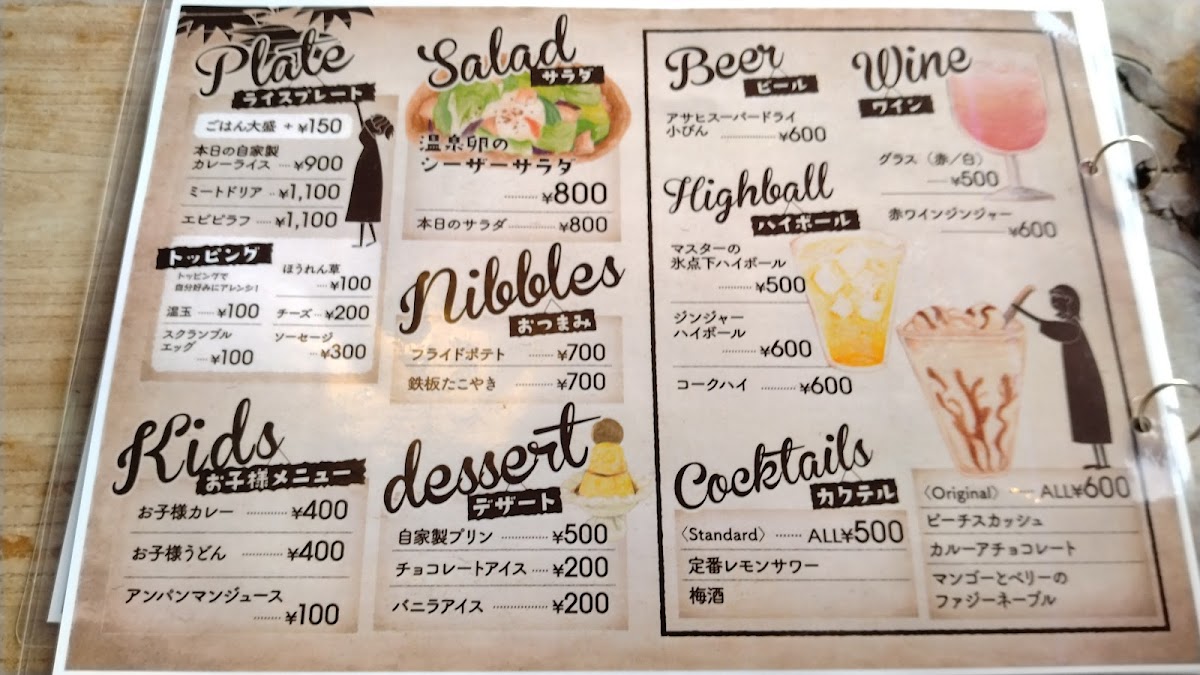 Plate
ライスプレート
ごはん大盛 + ¥150
本日の自家製
カレーライス ···· ¥900
ミートドリア ·· ¥1,100
エビピラフ ··· ¥1,100
トッピング
トッピングで
自分好みにアレンジ!
温玉 ···· ¥100
スクランブル
エッグ
···· ¥100
ほうれん草
······ ¥100
チーズ ··· ¥200
ソーセージ
··· ¥300
Kids
お子様メニュー
お子様カレー ··········· ¥400
お子様うどん ··········· ¥400
アンパンマンジュース
········ ¥100
Salad
サラダ
温泉卵の
シーザーサラダ
········· ¥800
本日のサラダ ········ ¥800
Nibbles
おつまみ
フライドポテト ········ ¥700
鉄板たこやき ········ ¥700
dessert
デザート
自家製プリン ············· ¥500
チョコレートアイス ···· ¥200
バニラアイス ·············· ¥200
Beer
ビール
アサヒスーパードライ
小びん ··············· ¥600
Wine
ワイン
グラス(赤/白)
········ ¥500
赤ワインジンジャー
········· ¥600
Highball
ハイボール
マスターの
氷点下ハイボール
············ ¥500
ジンジャー
ハイボール
·········· ¥600
コークハイ ··········· ¥600
Cocktails
カクテル
〈Standard〉 ······· ALL¥500
定番レモンサワー
梅酒
〈Original〉 ······ ALL¥600
ピーチスカッシュ
カルーアチョコレート
マンゴーとベリーの
ファジーネーブル